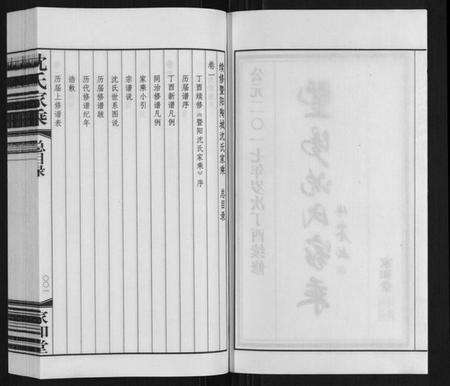 续修暨阳陶城沈氏家乘 总目录
卷一
丁酉续修《暨阳沈氏家乘》序
历届谱序
丁酉新谱凡例
同治修谱凡例
家乘小引
宗谱说
沈氏世系图说
历届修谱跋
历代修谱纪年
诰敕
历届上修谱表
沈氏家乘
总目录
〇〇一
家和堂
公元二〇一七年岁次丁酉续修
沈氏家乘
家和堂